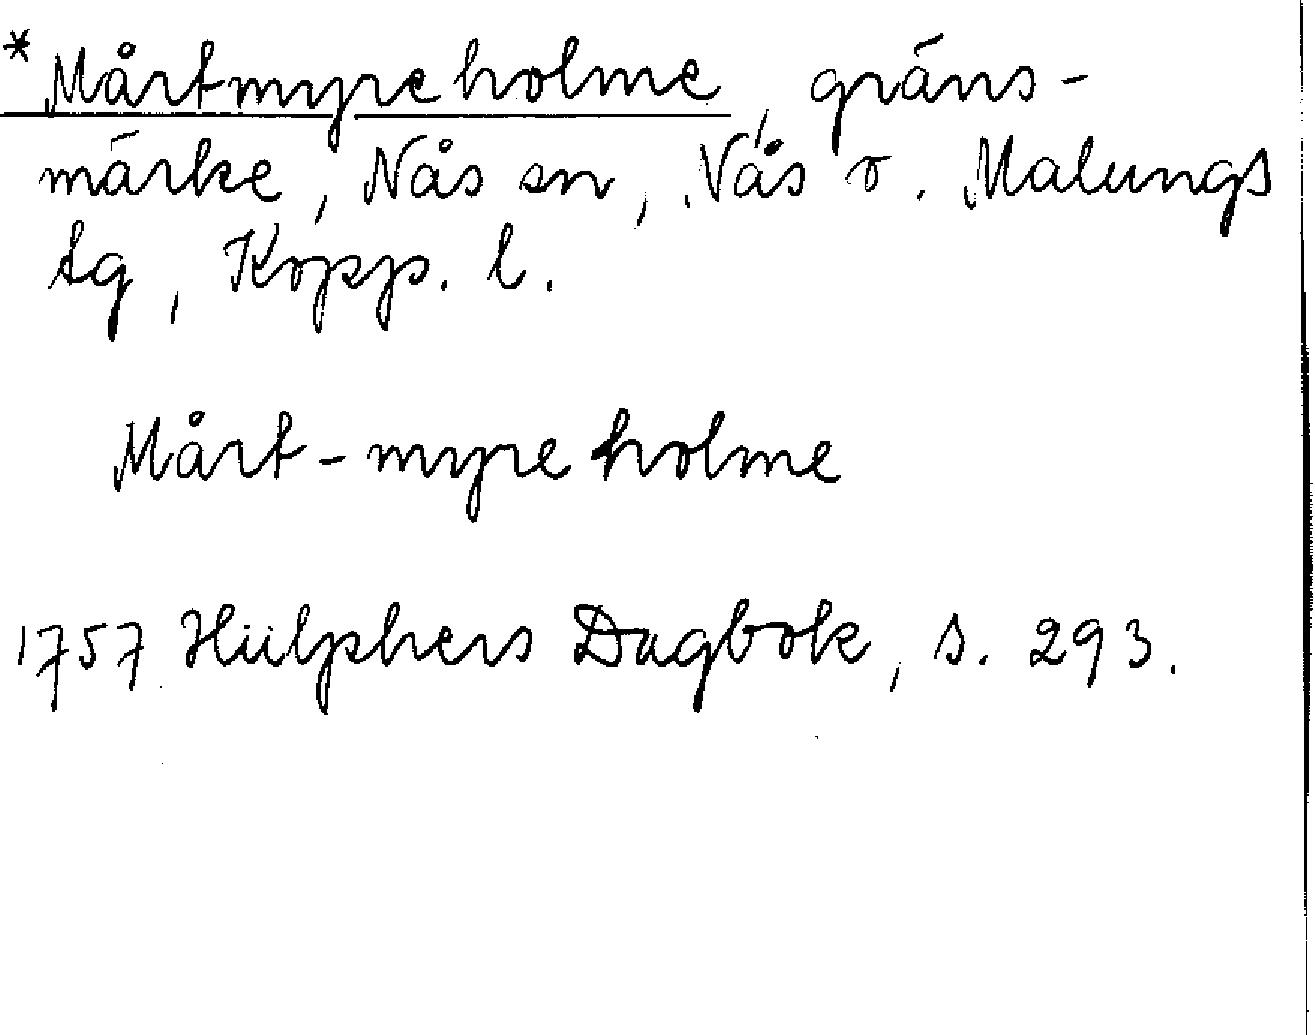 *Mårtmyreholme, gräns-
märke, Nås sn, Nås o. Malungs
tg, Kopp. l.
Mårt-myreholme
1757 Hülphers Dagbok, s. 293.